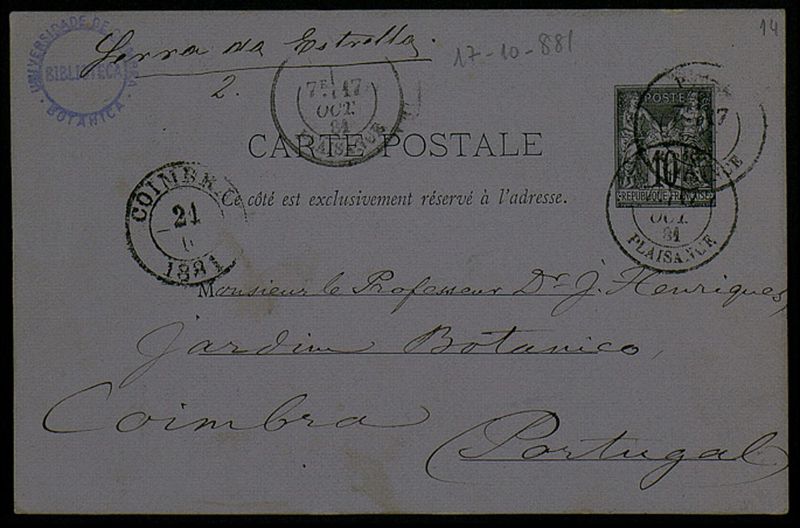 14
UNIVERSIDADE DE COIMBRA
BIBLIOTECA
BOTANICA
Serra da Estrella.
2.
17-10-881
7E 17
OCT.
81
PLAISANCE
POSTE
10
REPUBLIQUE FRANÇAISE
OCT.
81
PLAISANCE
CARTE POSTALE
Ce côté est exclusivement réservé à l'adresse.
COIMBRA
21
1881
Monsieur le Professeur Dr. J. Henriques,
Jardim Botanico,
Coimbra
(Portugal